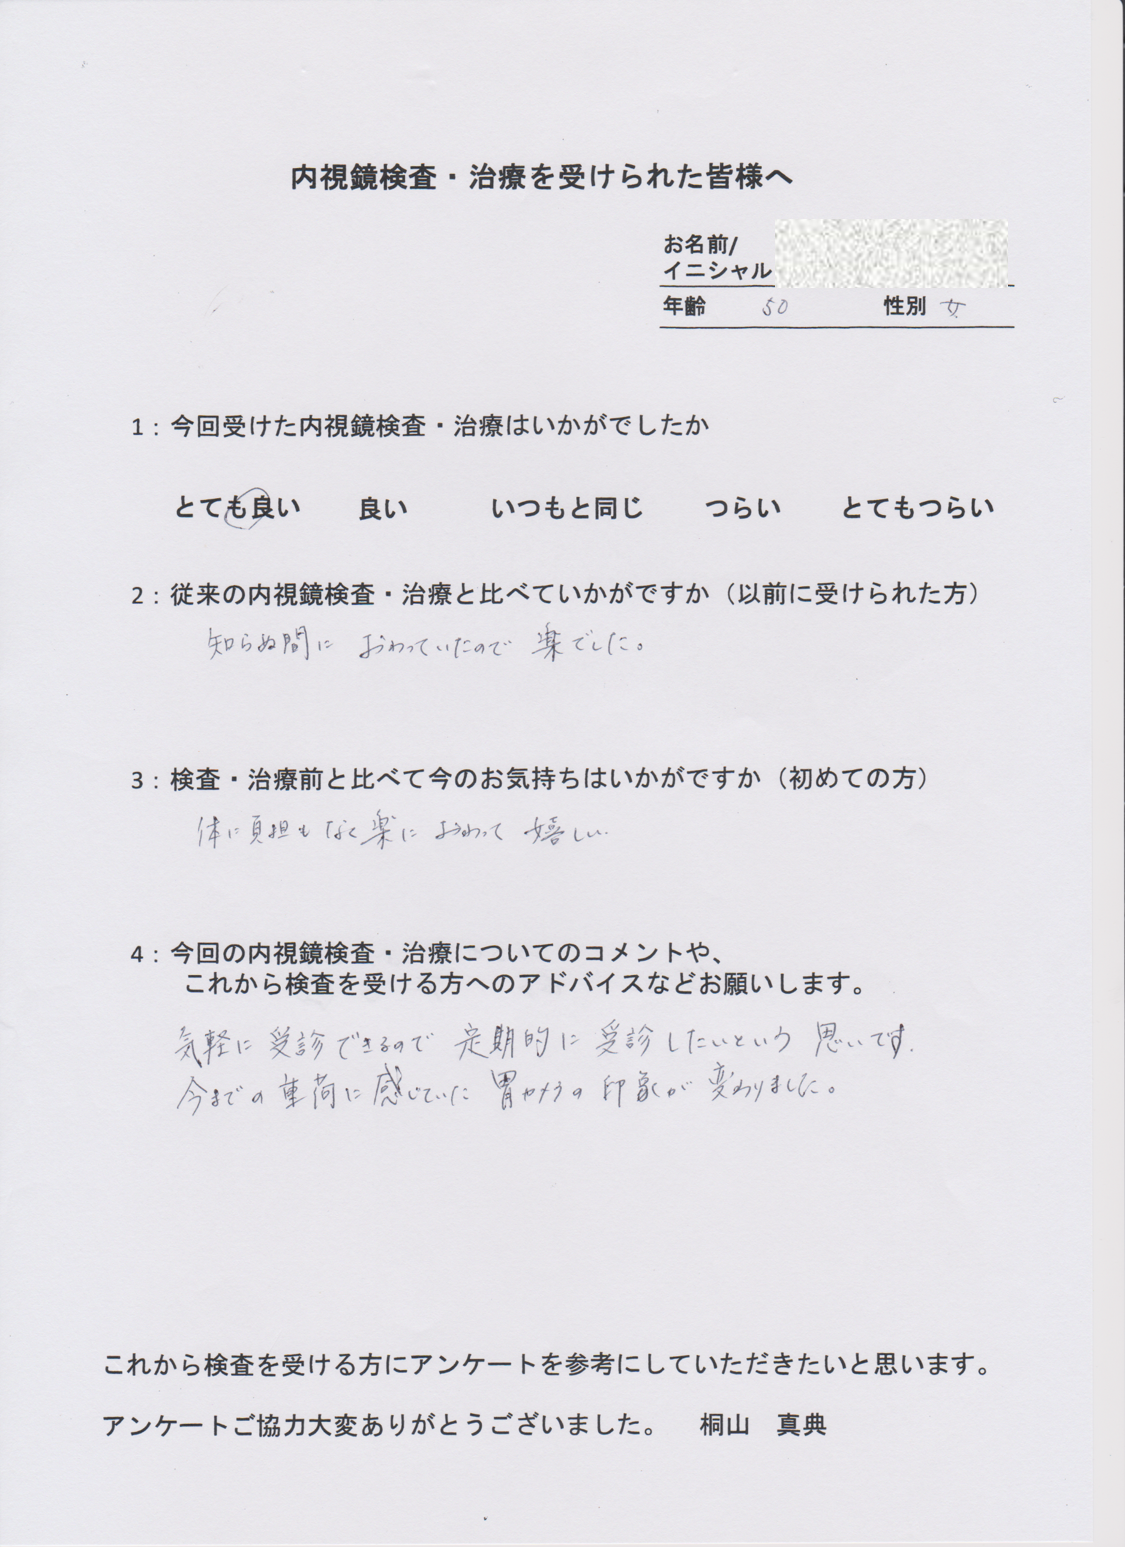 内視鏡検査・治療を受けられた皆様へ
お名前/
イニシャル
年齢 50 性別 女
1：今回受けた内視鏡検査・治療はいかがでしたか
とても良い 良い いつもと同じ つらい とてもつらい
2：従来の内視鏡検査・治療と比べていかがですか（以前に受けられた方）
知らぬ間に おわっていたので 楽でした。
3：検査・治療前と比べて今のお気持ちはいかがですか（初めての方）
体に負担もなく楽に おわって 嬉しい
4：今回の内視鏡検査・治療についてのコメントや、
これから検査を受ける方へのアドバイスなどお願いします。
気軽に受診できるので 定期的に受診したいという 思いです.
今までの重荷に感じていた 胃カメラの 印象が 変わりました。
これから検査を受ける方にアンケートを参考にしていただきたいと思います。
アンケートご協力大変ありがとうございました。 桐山 真典